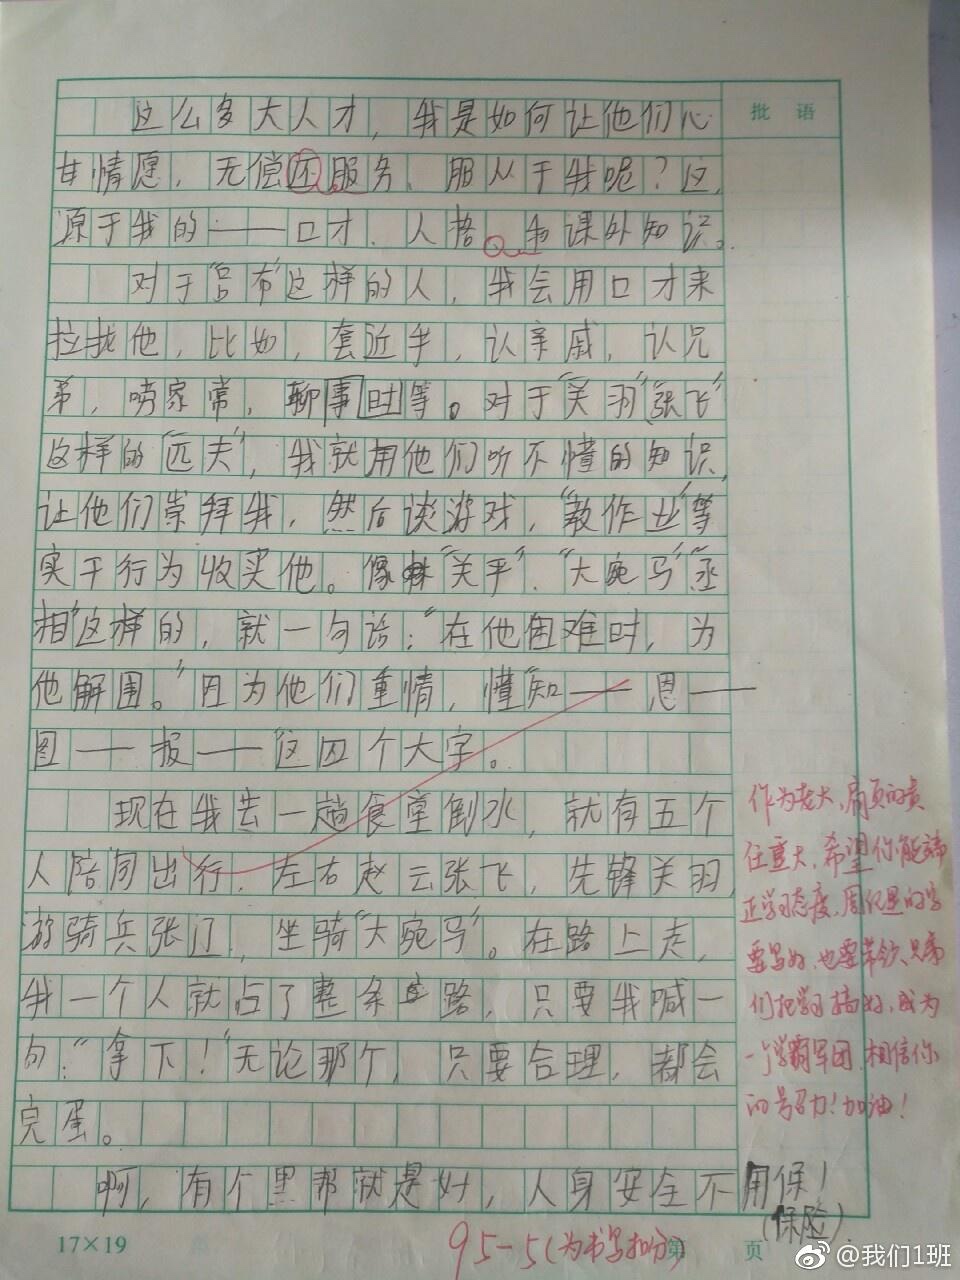 批 语
这么多大人才，我是如何让他们心
甘情愿，无偿还服务、服从于我呢？这
源于我的——口才、人格。和课外知识。
对于"吕布"这样的人，我会用口才来
拉拢他，比如，套近乎，认亲戚，认兄
弟，唠家常，聊事时等。对于"关羽""张飞"
这样的"匹夫"，我就用他们听不懂的知识，
让他们崇拜我，然后谈游戏，"教作业"等
实干行为收买他。像"关平"、"大宛马""丞
相"这样的，就一句话："在他困难时，为
他解围。"因为他们重情，懂"知——恩——
图——报——"这四个大字。
现在我去一趟食堂倒水，就有五个
人陪同出行，左右赵云张飞，先锋关羽，
游骑兵张辽，坐骑"大宛马"。在路上走，
我一个人就占了整条路，只要我喊一
句："拿下！"无论那个，只要合理，都会
完蛋。
啊，有个黑帮就是好，人身安全不用保！
(保险)
作为老大，肩负的责
任重大，希望你能端
正学习态度，周记里的字
要写好，也要带领兄弟
们把学习搞好，成为
一个学霸军团，相信你
的号召力！加油！
95-5(为书写扣分)
17×19
第 页
@我们1班